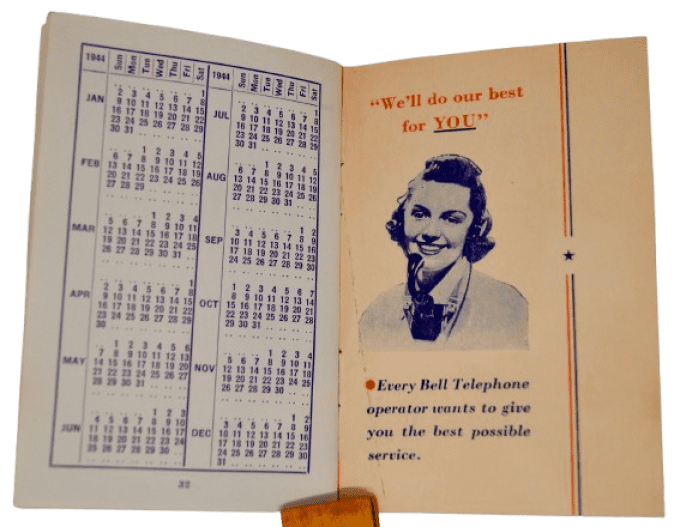 1944 Sun Mon Tue Wed Thu Fri Sat
JAN
1
2 3 4 5 6 7 8
9 10 11 12 13 14 15
16 17 18 19 20 21 22
23 24 25 26 27 28 29
30 31
FEB
1 2 3 4 5
6 7 8 9 10 11 12
13 14 15 16 17 18 19
20 21 22 23 24 25 26
27 28 29
MAR
1 2 3 4
5 6 7 8 9 10 11
12 13 14 15 16 17 18
19 20 21 22 23 24 25
26 27 28 29 30 31
APR
1
2 3 4 5 6 7 8
9 10 11 12 13 14 15
16 17 18 19 20 21 22
23 24 25 26 27 28 29
30
MAY
1 2 3 4 5 6
7 8 9 10 11 12 13
14 15 16 17 18 19 20
21 22 23 24 25 26 27
28 29 30 31
JUN
1 2 3
4 5 6 7 8 9 10
11 12 13 14 15 16 17
18 19 20 21 22 23 24
25 26 27 28 29 30
1944 Sun Mon Tue Wed Thu Fri Sat
JUL
1
2 3 4 5 6 7 8
9 10 11 12 13 14 15
16 17 18 19 20 21 22
23 24 25 26 27 28 29
30 31
AUG
1 2 3 4 5
6 7 8 9 10 11 12
13 14 15 16 17 18 19
20 21 22 23 24 25 26
27 28 29 30 31
SEP
1 2
3 4 5 6 7 8 9
10 11 12 13 14 15 16
17 18 19 20 21 22 23
24 25 26 27 28 29 30
OCT
1 2 3 4 5 6 7
8 9 10 11 12 13 14
15 16 17 18 19 20 21
22 23 24 25 26 27 28
29 30 31
NOV
1 2 3 4
5 6 7 8 9 10 11
12 13 14 15 16 17 18
19 20 21 22 23 24 25
26 27 28 29 30
DEC
1 2
3 4 5 6 7 8 9
10 11 12 13 14 15 16
17 18 19 20 21 22 23
24 25 26 27 28 29 30
31
32
“We'll do our best
for YOU”
Every Bell Telephone
operator wants to give
you the best possible
service.